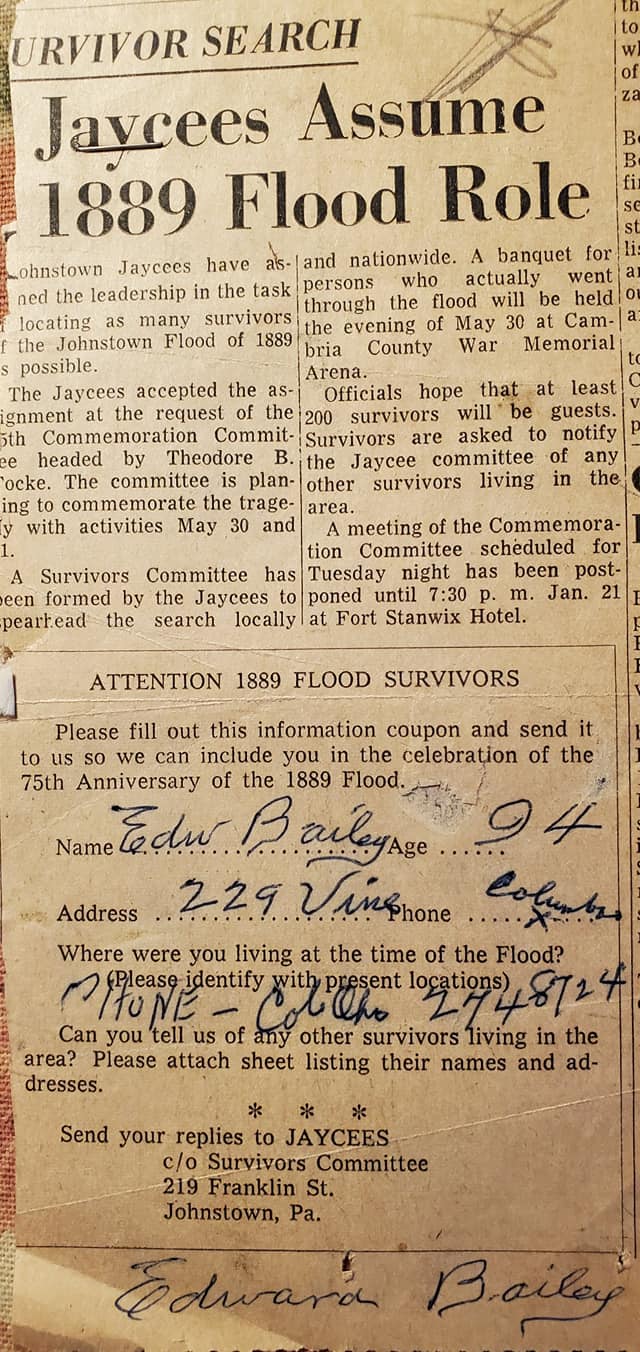 URVIVOR SEARCH
Jaycees Assume
1889 Flood Role
ohnstown Jaycees have as-
ned the leadership in the task
f locating as many survivors
f the Johnstown Flood of 1889
s possible.
The Jaycees accepted the as-
ignment at the request of the
5th Commemoration Commit-
ee headed by Theodore B.
ocke. The committee is plan-
ing to commemorate the trage-
y with activities May 30 and
1.
A Survivors Committee has
een formed by the Jaycees to
spearhead the search locally
and nationwide. A banquet for
persons who actually went
through the flood will be held
the evening of May 30 at Cam-
bria County War Memorial
Arena.
Officials hope that at least
200 survivors will be guests.
Survivors are asked to notify
the Jaycee committee of any
other survivors living in the
area.
A meeting of the Commemora-
tion Committee scheduled for
Tuesday night has been post-
poned until 7:30 p. m. Jan. 21
at Fort Stanwix Hotel.
ATTENTION 1889 FLOOD SURVIVORS
Please fill out this information coupon and send it
to us so we can include you in the celebration of the
75th Anniversary of the 1889 Flood.
Name Edw Bailey Age 94
Address 229 Vine Phone Columbus
x
Where were you living at the time of the Flood?
(Please identify with present locations)
PHONE - Col Oho 2748724
Can you tell us of any other survivors living in the
area? Please attach sheet listing their names and ad-
dresses.
* * *
Send your replies to JAYCEES
c/o Survivors Committee
219 Franklin St.
Johnstown, Pa.
Edward Bailey